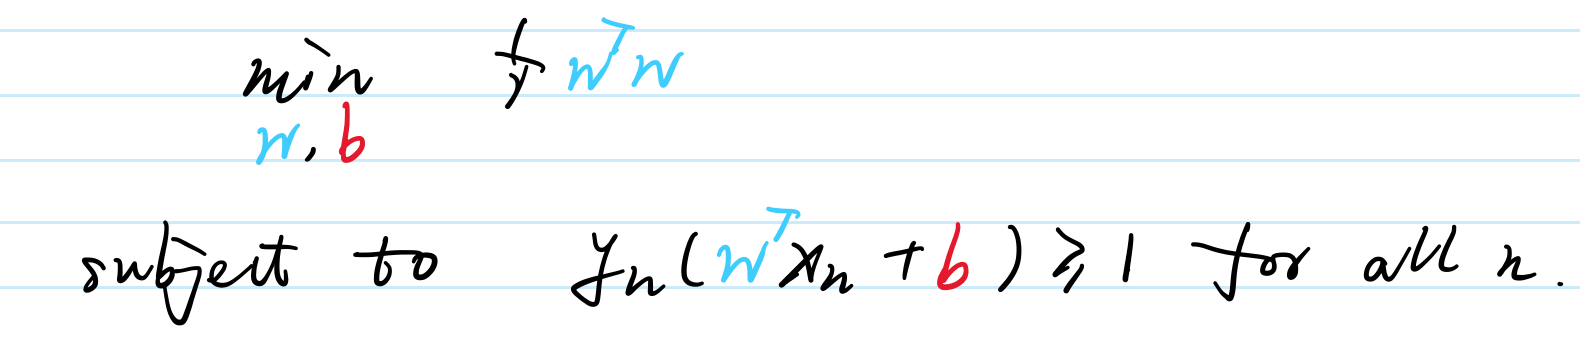 min 1/2 wᵀw
w, b
subject to yₙ(wᵀxₙ + b) ≥ 1 for all n.